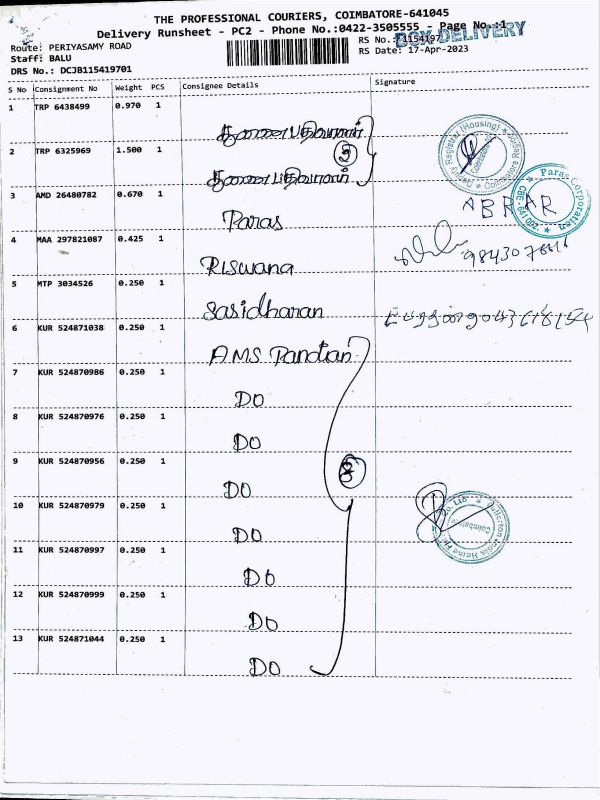 THE PROFESSIONAL COURIERS, COIMBATORE-641045
Delivery Runsheet - PC2 - Phone No.:0422-3505555 - Page No.:1
BOX DELIVERY
Route: PERIYASAMY ROAD
RS No.: 1154197
Staff: BALU
RS Date: 17-Apr-2023
DRS No.: DCJB115419701
S No Consignment No Weight PCS Consignee Details Signature
1 TRP 6438499 0.970 1
2 TRP 6325969 1.500 1
3 AMD 26480782 0.670 1 Paras
ABRAR
4 MAA 297821087 0.425 1 Riswana
5 MTP 3034526 0.250 1 Sasidharan
6 KUR 524871038 0.250 1 AMS Pandian
7 KUR 524870986 0.250 1 DO
8 KUR 524870976 0.250 1 DO
9 KUR 524870956 0.250 1 DO
10 KUR 524870979 0.250 1 DO
11 KUR 524870997 0.250 1 DO
12 KUR 524870999 0.250 1 DO
13 KUR 524871044 0.250 1 DO
Paras Corporation
CBE - 641 002